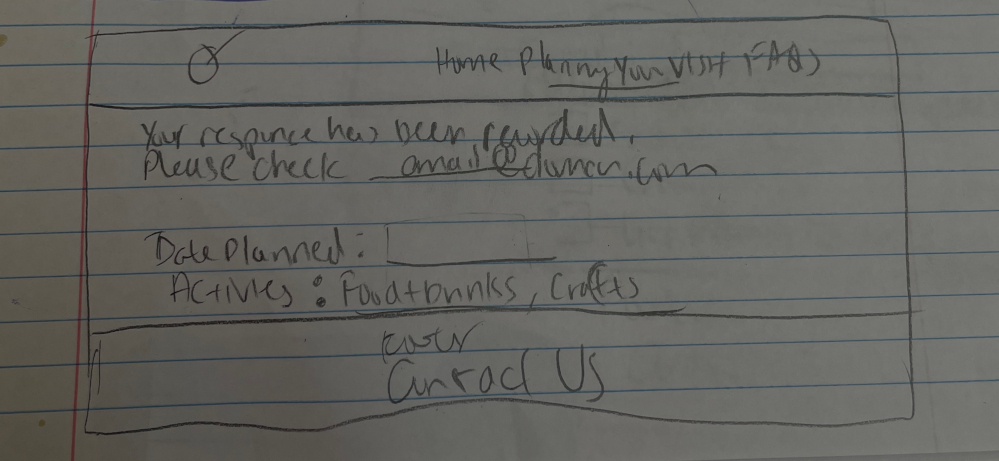 Home Planning Your Visit FAQs
Your responce has been recorded.
Please check email@domain.com
Date Planned:
Activies: Food+Drinks, Crafts
Footer
Contact Us